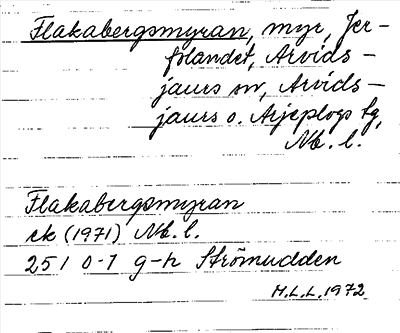 Flakabergsmyran, myr, Jer-
frlandet, Arvids-
jaurs sn, Arvids-
jaurs o. Arjeplogs tg,
Nb. l.
Flakabergsmyran
ek (1971) Nb. l.
251 0-1 g-h Strömudden
H.L.L. 1972